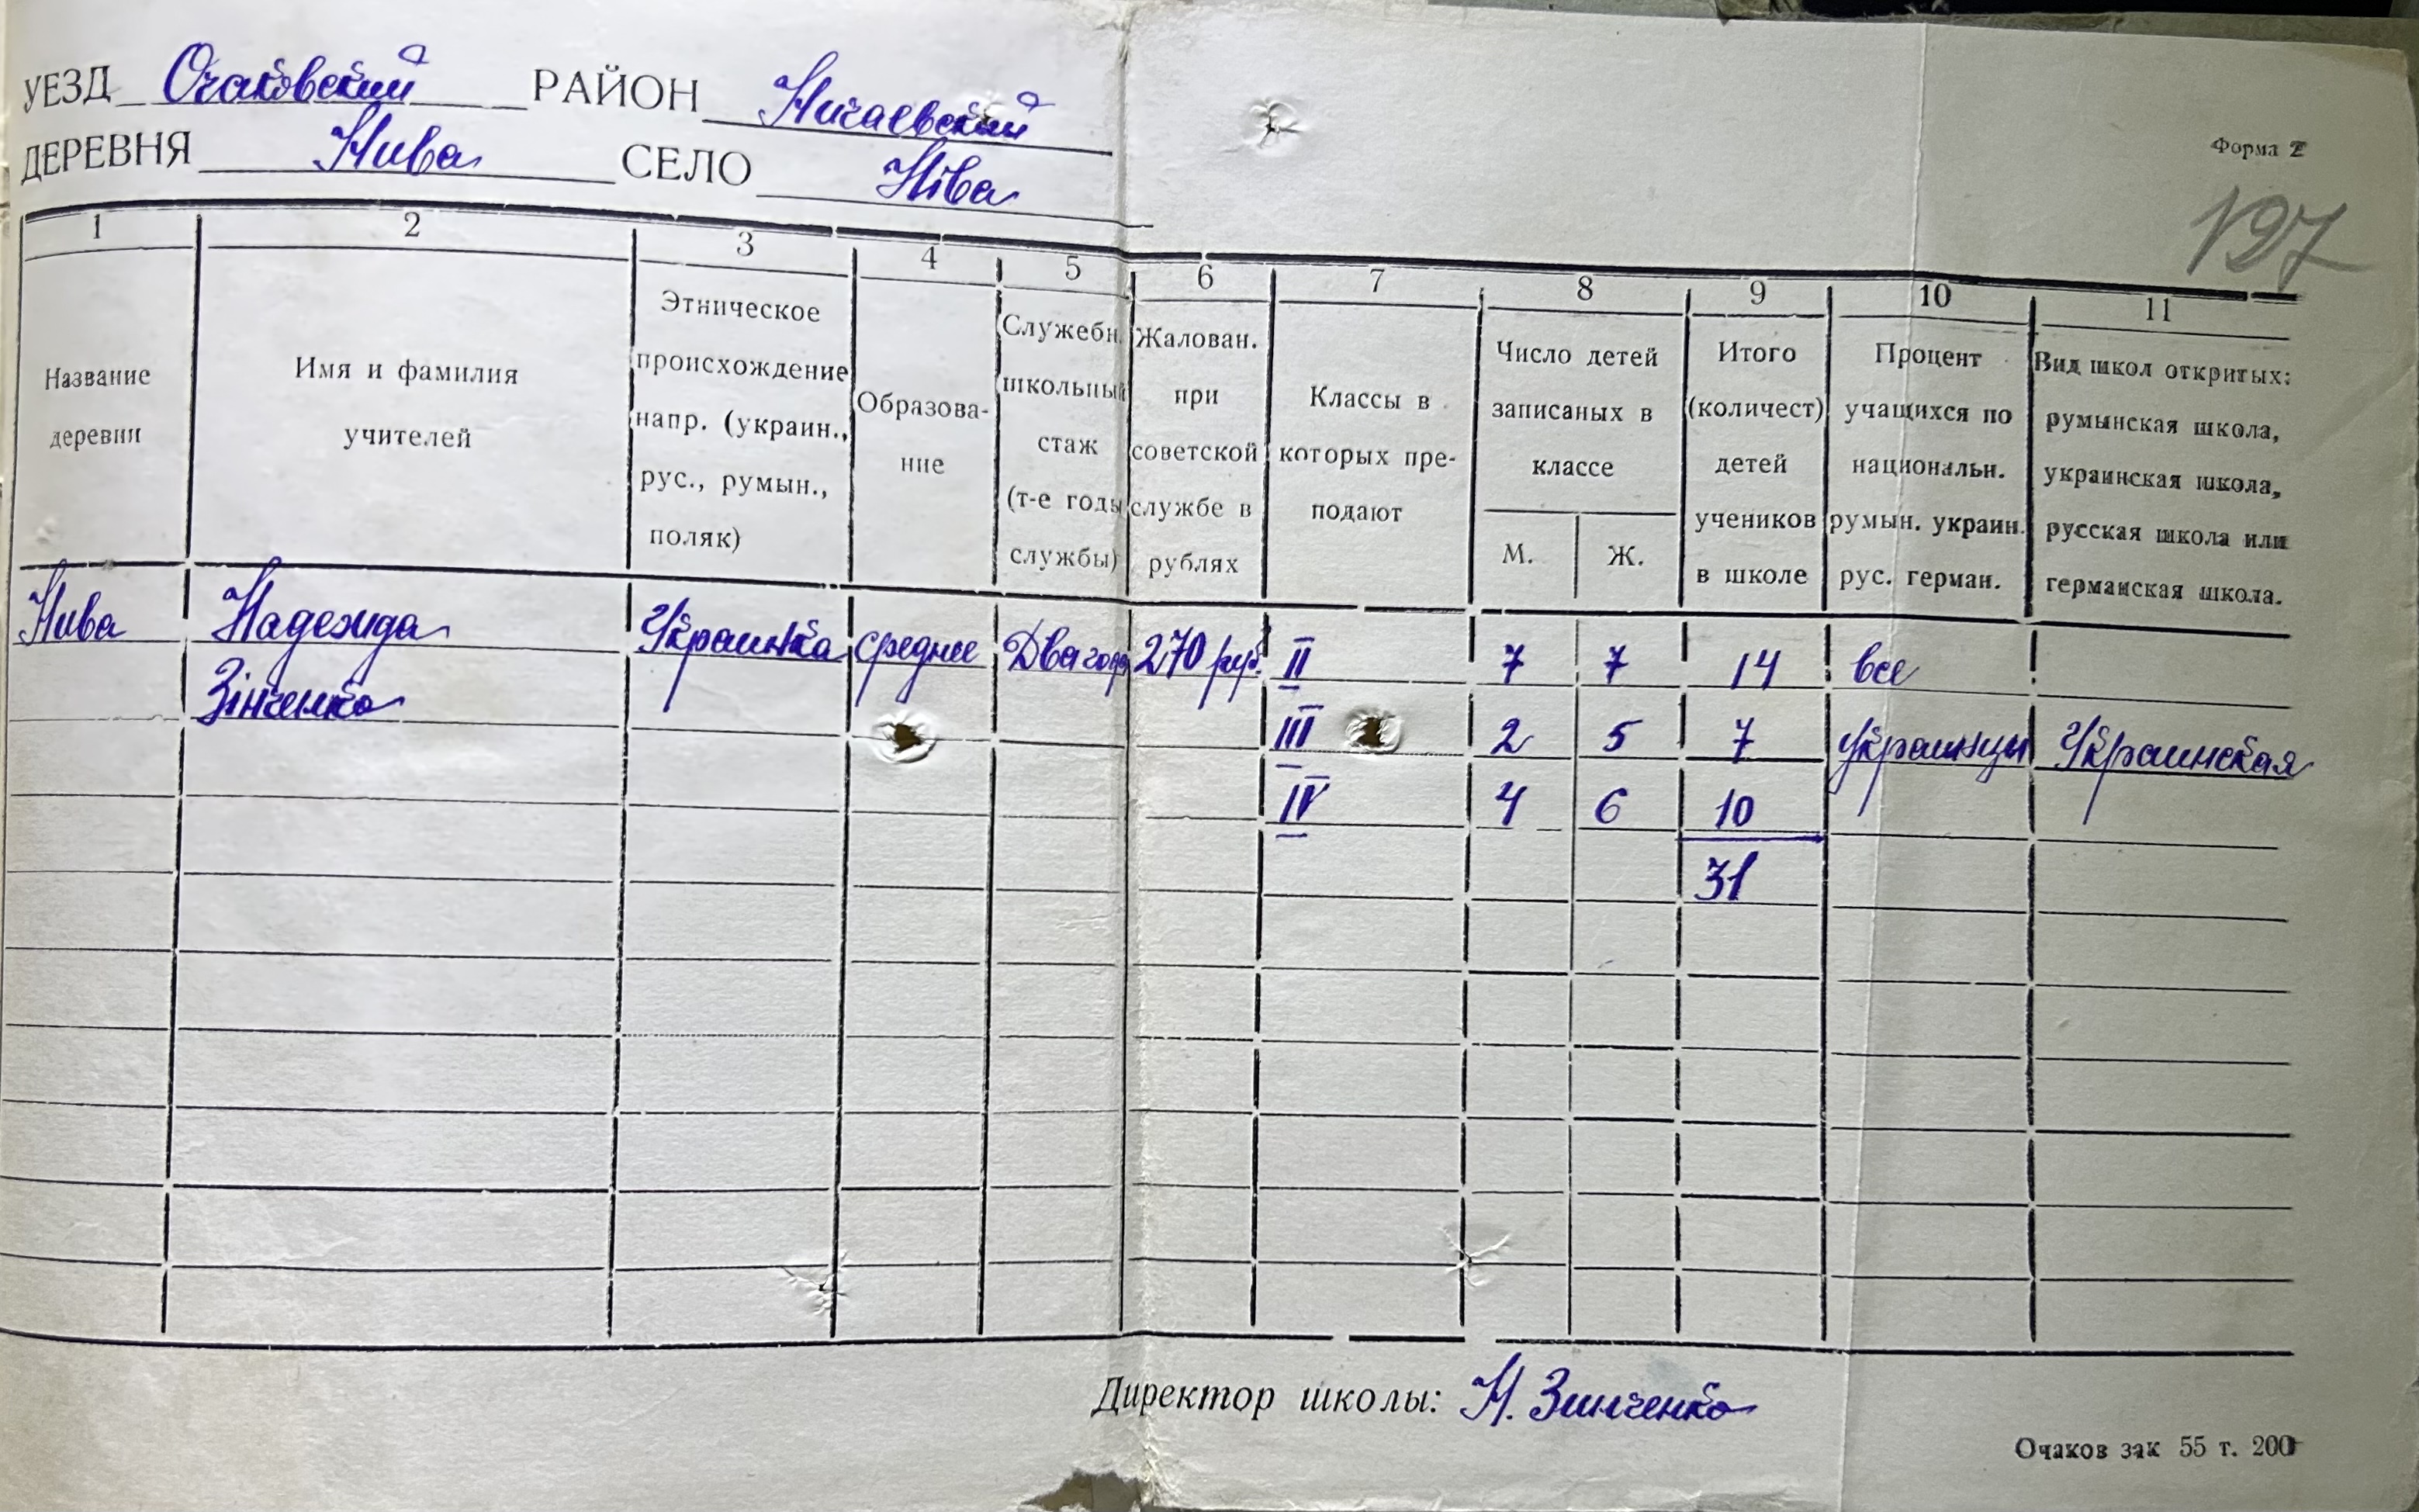 УЕЗД Очаковский РАЙОН Ничаевский
ДЕРЕВНЯ Нива СЕЛО Ніва
Форма 2
197
1 2 3 4 5 6 7 8 9 10 11
Название
деревни
Имя и фамилия
учителей
Этническое
происхождение
напр. (украин.,
рус., румын.,
поляк)
Образова-
ние
Служебн.
школьный
стаж
(т-е годы
службы)
Жалован.
при
советской
службе в
рублях
Классы в
которых пре-
подают
Число детей
записаных в
классе
М. Ж.
Итого
(количест)
детей
учеников
в школе
Процент
учащихся по
национальн.
румын. украин.
рус. герман.
Вид школ откритых:
румынская школа,
украинская школа,
русская школа или
германская школа.
Нива Надежда Украинка среднее Два года 270 руб. II 7 7 14 все
Зінченко III 2 5 7 украинцы Украинская
IV 4 6 10
31
Директор школы: Н. Зинченко
Очаков зак 55 т. 200